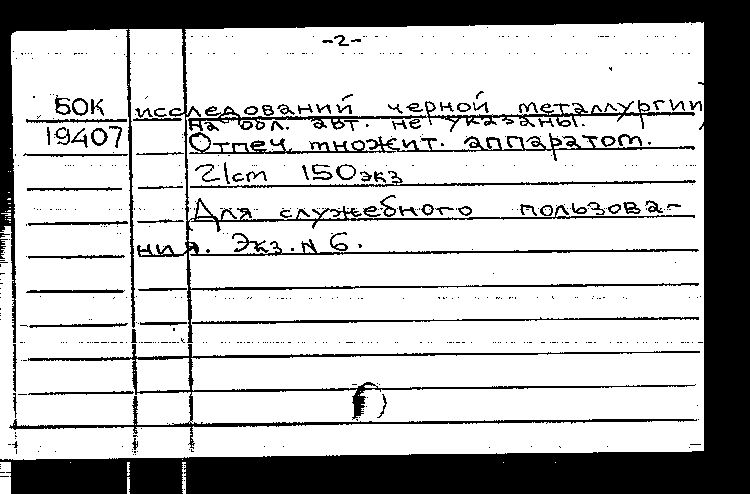 -2-
БОК исследований черной металлургии
19407 На обл. авт. не указаны.
Отпеч. множит. аппаратом.
21см 150экз
Для служебного пользова-
ния. Экз. N 6.